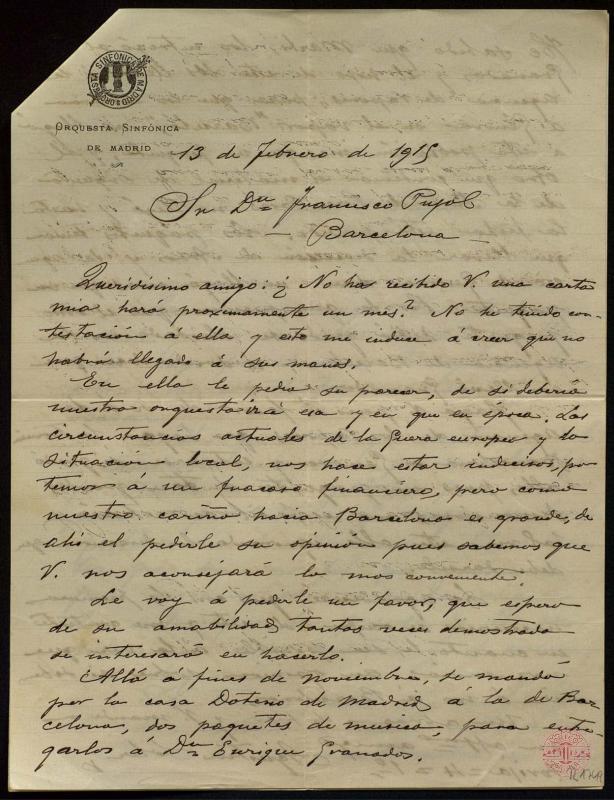 ORQUESTA SINFÓNICA DE MADRID
ORQUESTA SINFÓNICA
DE MADRID
13 de Febrero de 1915
Sr Dn Francisco Pujol
Barcelona
Queridísimo amigo: ¿No ha recibido V. una carta
mia hará proximamente un mes? No he tenido con-
testación á ella y esto me induce á creer que no
habrá llegado á sus manos.
En ella le pedia su parecer, de si deberia
nuestra orquesta ir á esa y en que época. Las
circunstancias actuales de la Guerra europea y la
situación local, nos hace estar indecisos, por
temor á un fracaso financiero, pero como
nuestro cariño hacia Barcelona es grande, de
ahí el pedirle su opinión pues sabemos que
V. nos aconsejará lo mas conveniente.
Le voy á pedirle un favor, que espero
de su amabilidad, tantas veces demostrada
se interesará en hacerlo.
Allá á fines de noviembre, se mandó
por la casa Dotesio de Madrid, á la de Bar-
celona, dos paquetes de musica, para entre-
garlos á Dn Enrique Granados.